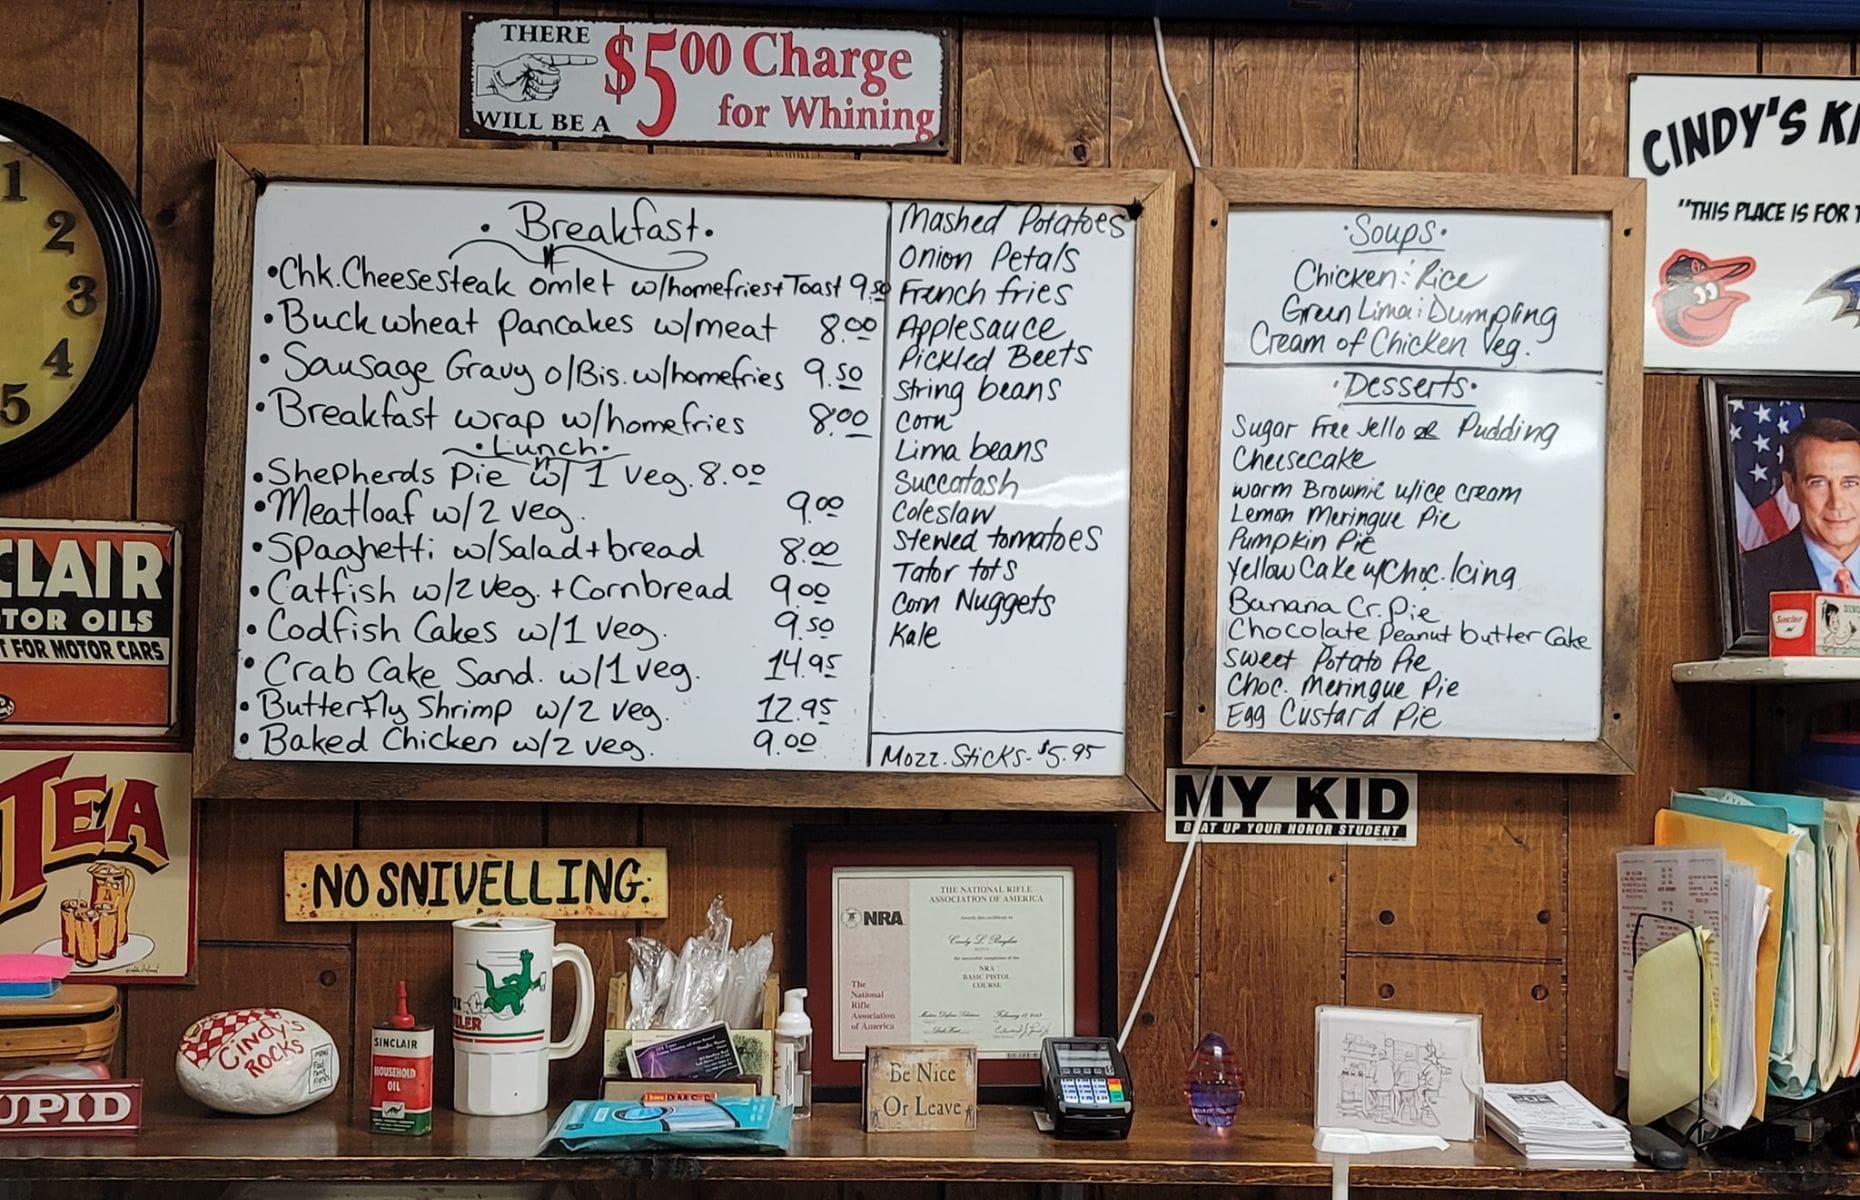 THERE
WILL BE A
$5.00 Charge
for Whining
1
2
3
4
5
· Breakfast ·
• Chk. Cheesesteak omlet w/homefries + Toast 9.50
• Buckwheat Pancakes w/meat 8.00
• Sausage Gravy o/Bis. w/homefries 9.50
• Breakfast wrap w/homefries 8.00
· Lunch ·
• Shepherds Pie w/ 1 veg. 8.00
• Meatloaf w/2 veg. 9.00
• Spaghetti w/Salad + bread 8.00
• Catfish w/2 veg. + Cornbread 9.00
• Codfish Cakes w/1 veg. 9.50
• Crab Cake Sand. w/1 veg. 14.95
• Butterfly Shrimp w/2 veg. 12.95
• Baked Chicken w/2 veg. 9.00
Mashed Potatoes
Onion Petals
French fries
Applesauce
Pickled Beets
String beans
Corn
Lima beans
Succatash
Coleslaw
Stewed tomatoes
Tator tots
Corn Nuggets
Kale
Mozz. Sticks - $5.95
· Soups ·
Chicken : Rice
Green Lima : Dumpling
Cream of Chicken Veg.
· Desserts ·
Sugar Free Jello or Pudding
Cheesecake
Warm Brownie w/ice cream
Lemon Meringue Pie
Pumpkin Pie
Yellow Cake w/Choc. Icing
Banana Cr. Pie
Chocolate Peanut butter Cake
Sweet Potato Pie
Choc. Meringue Pie
Egg Custard Pie
CINDY'S KI
"THIS PLACE IS FOR T
CLAIR
TOR OILS
T FOR MOTOR CARS
TEA
NO SNIVELLING.
MY KID
BEAT UP YOUR HONOR STUDENT
THE NATIONAL RIFLE
ASSOCIATION OF AMERICA
NRA
NRA
BASIC PISTOL
COURSE
The
National
Rifle
Association
of America
Cindy's
ROCKS
SINCLAIR
HOUSEHOLD
OIL
Be Nice
Or Leave
UPID
Sinclair
DINO